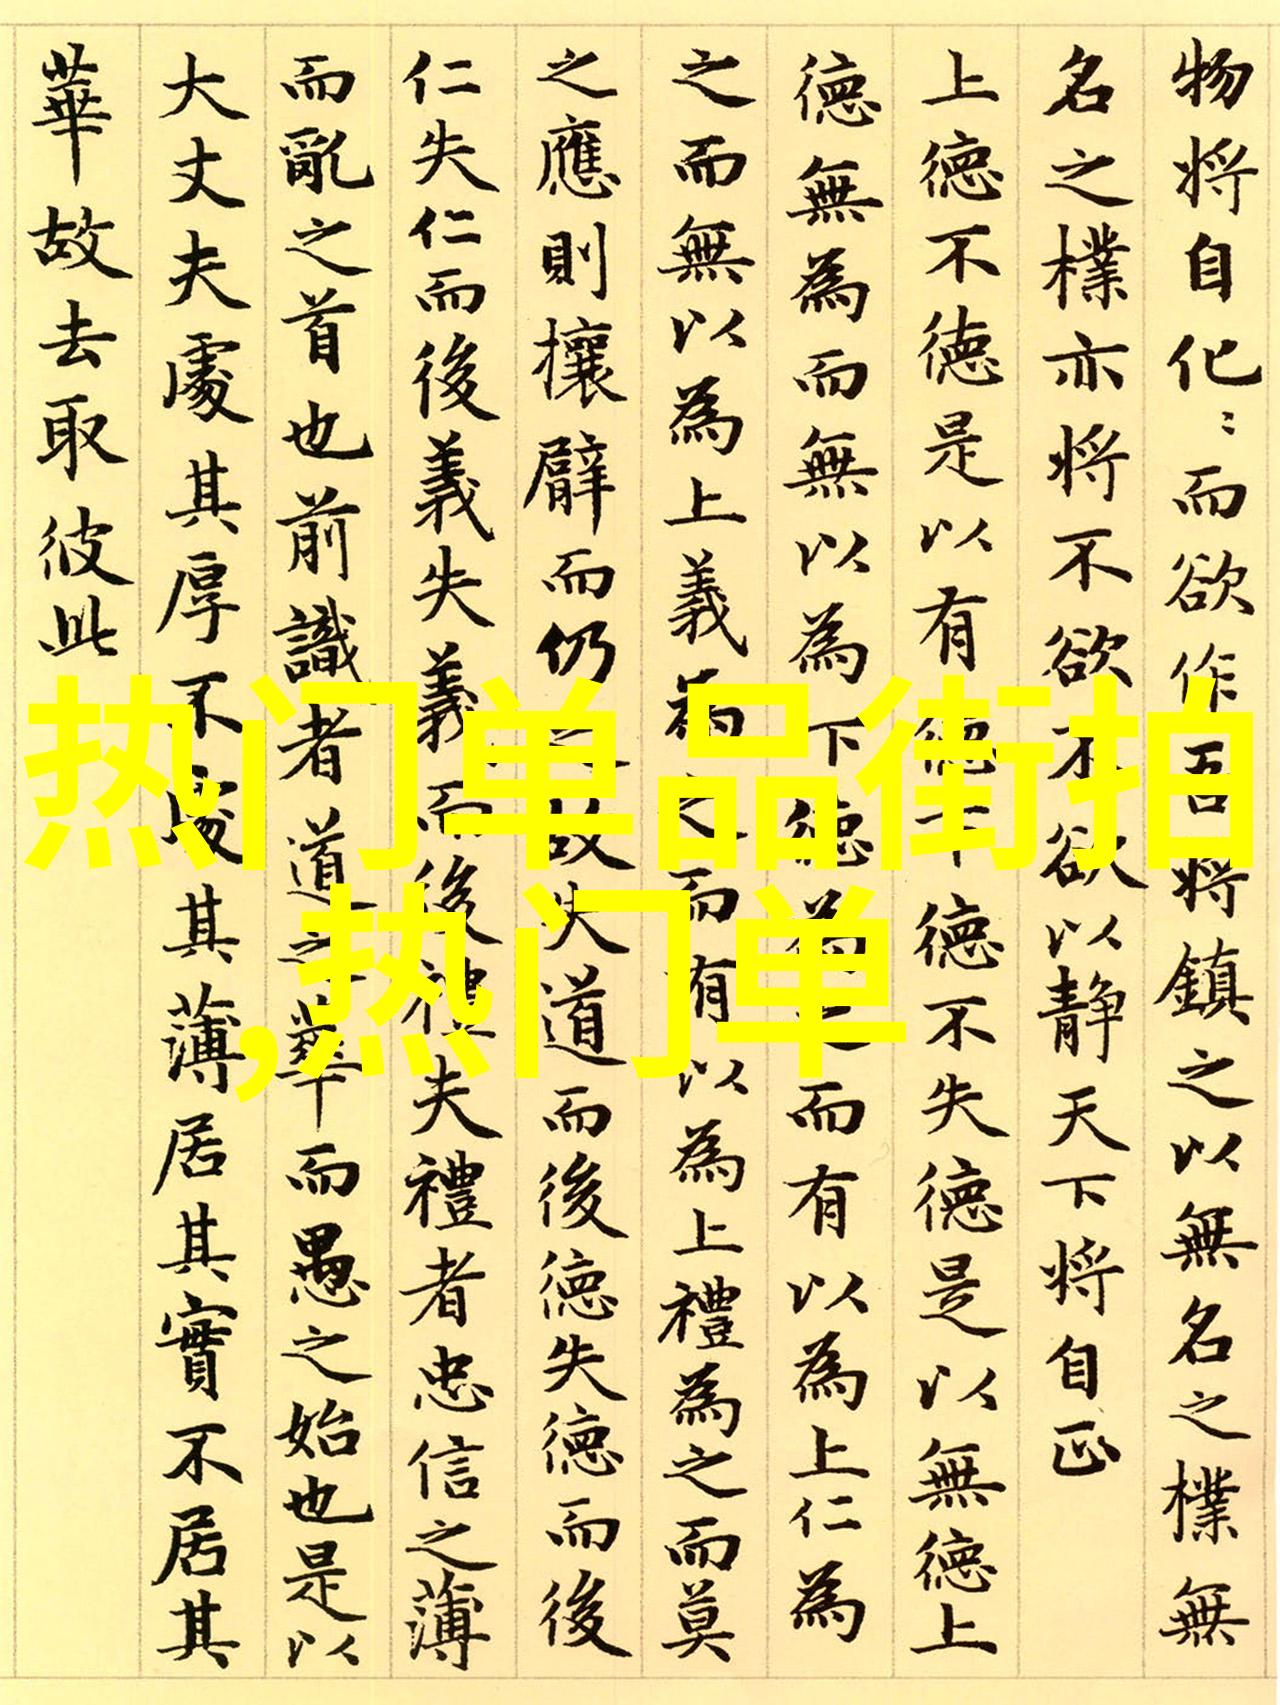 物將自化〻而欲作吾將鎮之以無名之樸無
名之樸亦將不欲不欲以静天下將自正
上德不德是以有德下德不失德是以無德上
德無為而無以為下德為之而有以為上仁為
之而無以為上義為之而有以為上禮為之而莫
之應則攘臂而仍之故失道而後德失德而後
仁失仁而後義失義而後禮夫禮者忠信之薄
而亂之首也前識者道之華而愚之始也是以
大丈夫處其厚不處其薄居其實不居其
華故去取彼此
热门单品街拍
,热门单